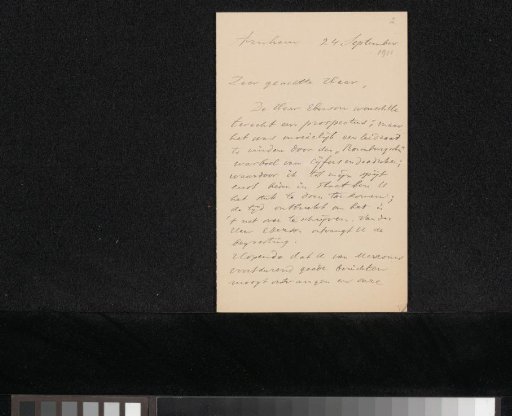 2
Arnhem 24 September
1911
Zeer geachte Heer,
De Heer Eberson
een prospectus; maar
het was moeielijk een leidraad
te vinden door den
warboel van cijfers en
waardoor ik tot mijn spijt
eerst heden in staat ben U
het stuk te doen toekomen;
de tijd ontbrak om het in
't net over te schrijven. Van den
Heer Eberson ontvangt U de
begrooting.
Hopende dat U van Mevrouw
voortdurend goede berichten
moogt ontvangen en onze